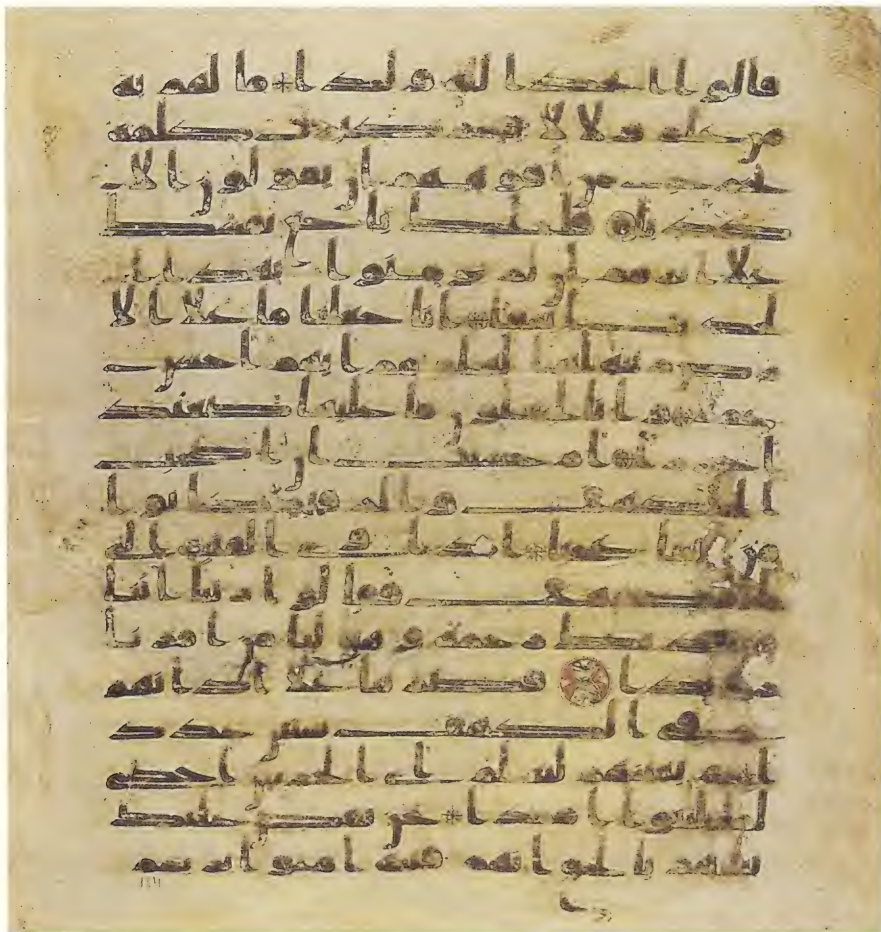 قالوا اتخذ الله ولدا * ما لهم به
من علم ولا لابائهم كبرت كلمة
تخرج من افوههم ان يقولون الا
كذبا فلعلك باخع نفسك
على اثرهم ان لم يؤمنوا بهذا ا
لحديث اسفا * انا جعلنا ما على الا
رض زينة لها لنبلوهم ايهم احسن
عملا * وانا لجعلون ما عليها صعيد
ا جرزا * ام حسبت ان اصحب
الكهف والرقيم كانوا
من ايتنا عجبا * اذ اوى الفتية الى
الكهف فقالوا ربنا اتنا
من لدنك رحمة وهيئ لنا من امرنا
رشدا فضربنا على اذانهم
في الكهف سنين عدد
ا ثم بعثنهم لنعلم اي الحزبين احصى
لما لبثوا امدا * نحن نقص عليك
نباهم بالحق انهم فتية امنوا بربهم